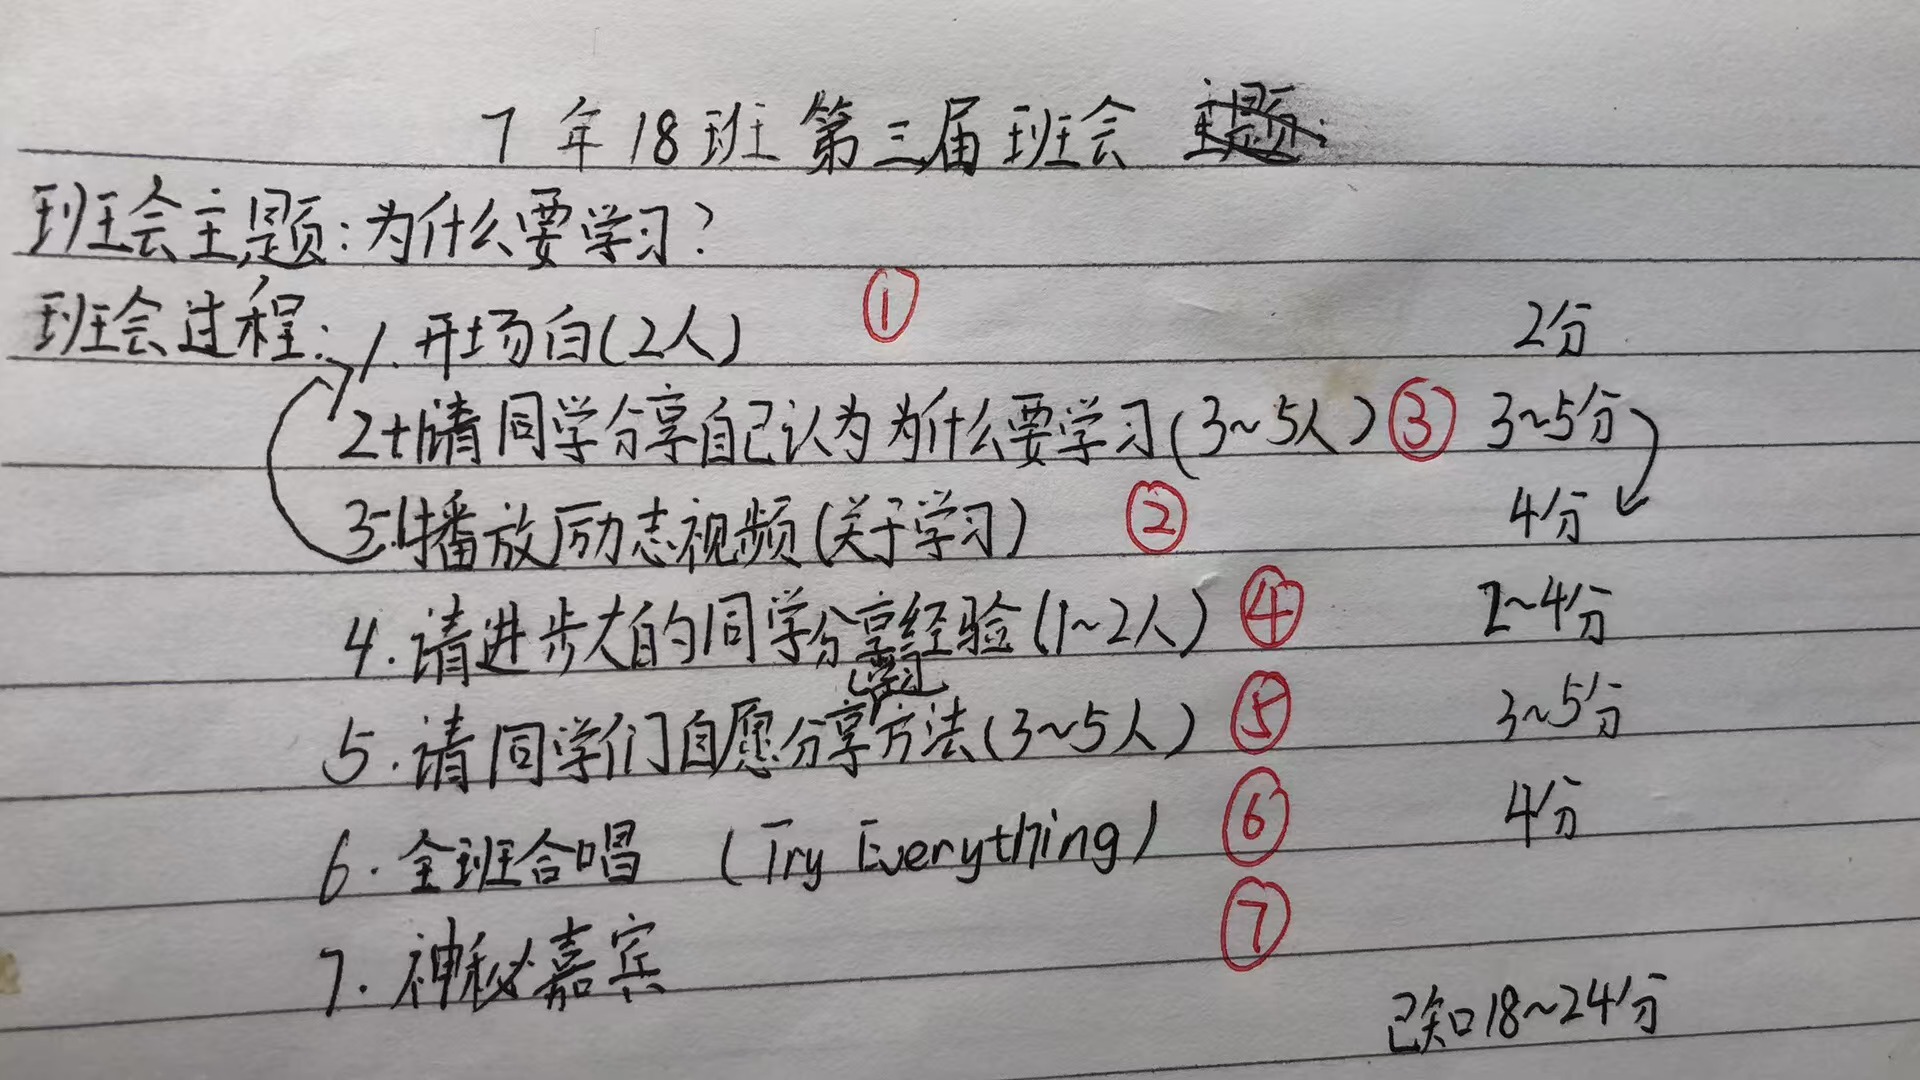 7年18班第三届班会 主题:
班会主题:为什么要学习?
班会过程: 1.开场白(2人) ① 2分
2 请同学分享自己认为为什么要学习(3~5人) ③ 3~5分
3. 播放励志视频(关于学习) ② 4分
4.请进步大的同学分享经验(1~2人) ④ 2~4分
学习
5.请同学们自愿分享方法(3~5人) ⑤ 3~5分
6.全班合唱 (Try Everything) ⑥ 4分
7.神秘嘉宾 ⑦
已知18~24分